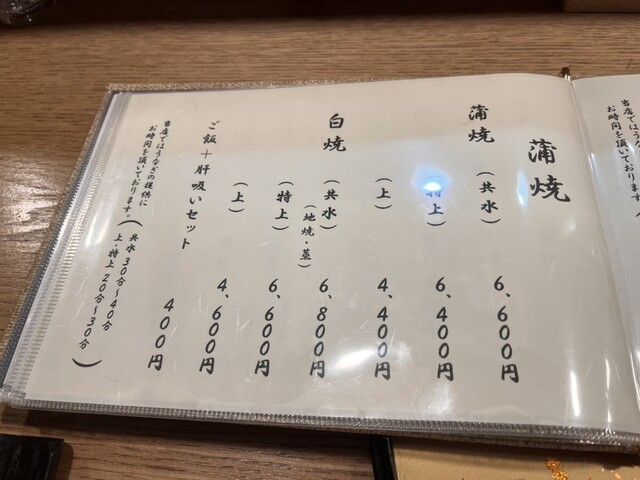 蒲焼
蒲焼 （共水） 6、600円
（特上） 6、400円
（上） 4、400円
白焼 （共水） （地焼・蒸） 6、800円
（特上） 6、600円
（上） 4、600円
ご飯＋肝吸いセット 400円
当店ではうなぎの提供に
お時間を頂いております。
（共水 30分〜40分
上・特上 20分〜30分）
当店ではうな
お時間を頂い